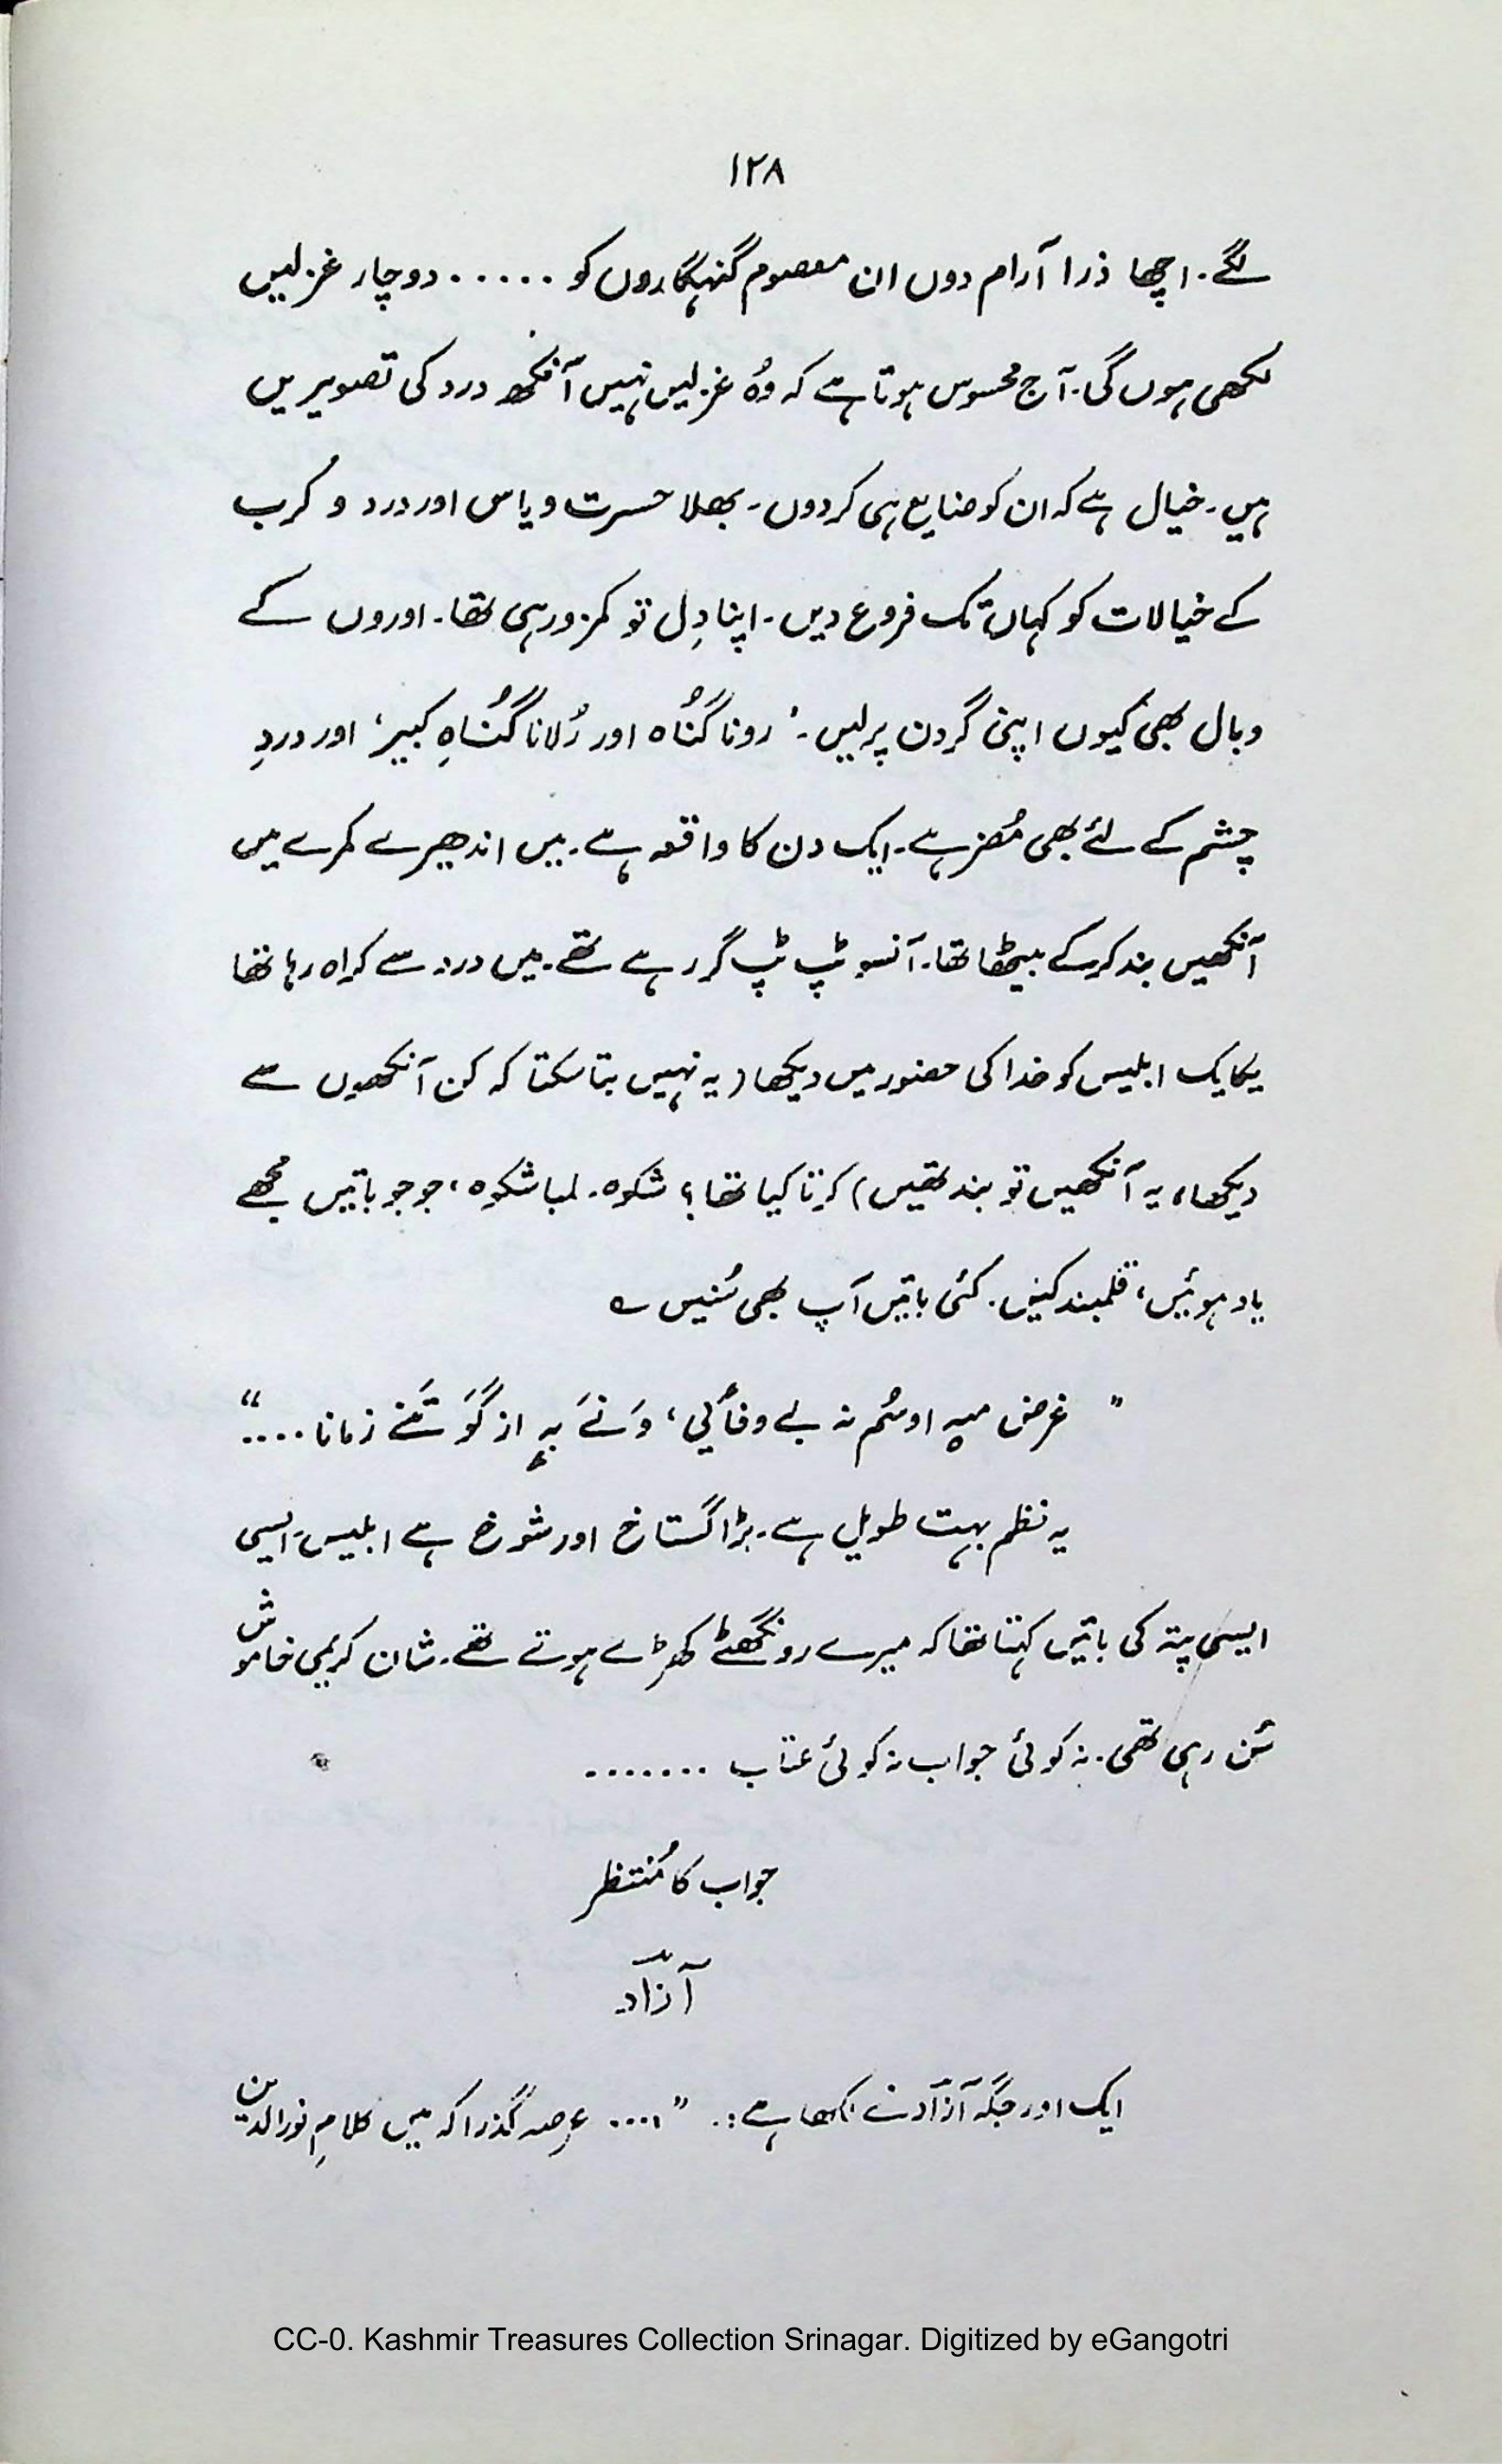 ۱۲۸
لگے۔ اچھا ذرا آرام دوں ان معصوم گنہگاروں کو ۔۔۔۔۔۔ دوچار غزلیں
لکھی ہوں گی۔ آج محسوس ہوتا ہے کہ وُہ غزلیں نہیں آنکھ درد کی تصویریں
ہیں۔ خیال ہے کہ ان کو ضایع ہی کردوں۔ بھلا حسرت و یاس اور درد و کرب
کے خیالات کو کہاں تک فروع دیں۔ اپنا دِل تو کمزور ہی تھا۔ اوروں کے
وبال بھی کیوں اپنی گردن پر لیں۔ ’رونا گُناہ اور رُلانا گُناہِ کبیر‘ اور دردِ
چشم کے لئے بھی مُضر ہے۔ ایک دن کا واقعہ ہے۔ میں اندھیرے کمرے میں
آنکھیں بند کرکے بیٹھا تھا۔ آنسو ٹپ ٹپ گر رہے تھے۔ میں درد سے کراہ رہا تھا
یکایک ابلیس کو خدا کی حضور میں دیکھا (یہ نہیں بتا سکتا کہ کن آنکھوں سے
دیکھا، یہ آنکھیں تو بند تھیں) کرتا کیا تھا؟ شکوہ۔ لمبا شکوہ، جو جو باتیں مجھے
یاد ہوئیں، قلمبند کیں۔ کئی باتیں آپ بھی سُنیں ؎
” غرض میہِ اوسُم نہ بے وفأیی، وَنےَ بہٕ از گوَ تَمۍ زمانا ۔۔۔۔“
یہ نظم بہت طویل ہے۔ بڑا گستاخ اور شوخ ہے ابلیس۔ ایسی
ایسی پتہ کی باتیں کہتا تھا کہ میرے رونگھٹے کھڑے ہوتے تھے۔ شان کریمی خاموش
سُن رہی تھی۔ نہ کوئی جواب نہ کوئی عتاب ۔۔۔۔۔۔۔
جواب کا مُنتظر
آزاد
ایک اور جگہ آزاد نے لکھا ہے:۔ ”۔۔۔۔ عرصہ گذرا کہ میں کلامِ نورالدین
CC-0. Kashmir Treasures Collection Srinagar. Digitized by eGangotri